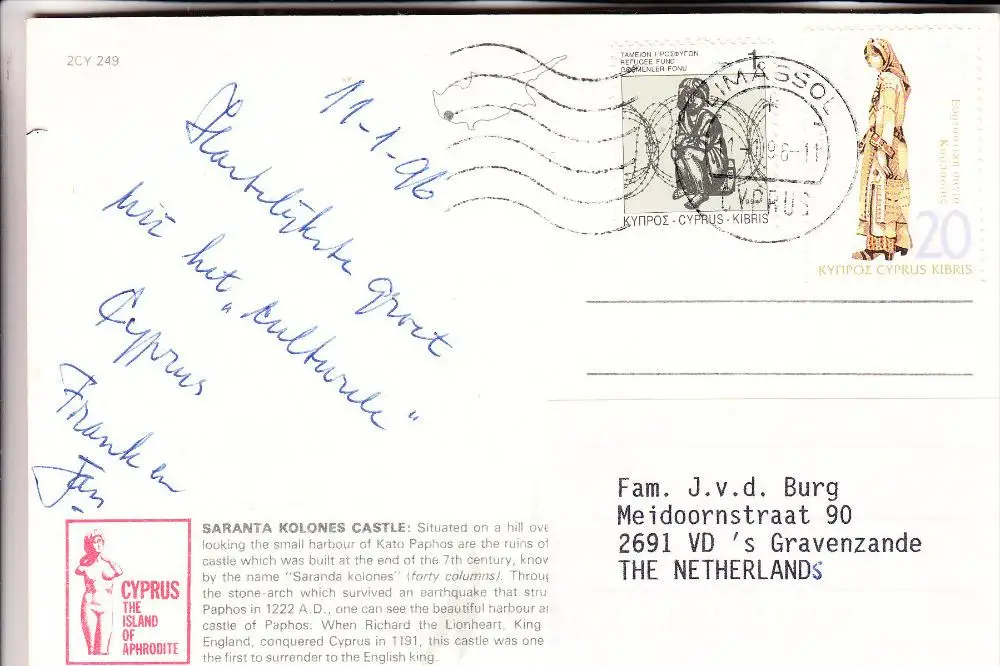 2CY 249
11-1-96
Hartelijkste groet
uit het "culturele"
Cyprus
Frank en
Jan
ΤΑΜΕΙΟΝ ΠΡΟΣΦΥΓΩΝ
REFUGEE FUND
GÖÇMENLER FONU
1
ΚΥΠΡΟΣ - CYPRUS - KIBRIS
LIMASSOL
96-11
CYPRUS
20
ΚΥΠΡΟΣ CYPRUS KIBRIS
Fam. J.v.d. Burg
Meidoornstraat 90
2691 VD 's Gravenzande
THE NETHERLANDS
SARANTA KOLONES CASTLE: Situated on a hill ove
looking the small harbour of Kato Paphos are the ruins of
castle which was built at the end of the 7th century, know
by the name "Saranda kolones" (forty columns). Throug
the stone-arch which survived an earthquake that stru
Paphos in 1222 A.D., one can see the beautiful harbour a
castle of Paphos. When Richard the Lionheart, King
England, conquered Cyprus in 1191, this castle was one
the first to surrender to the English king.
CYPRUS
THE
ISLAND
OF
APHRODITE